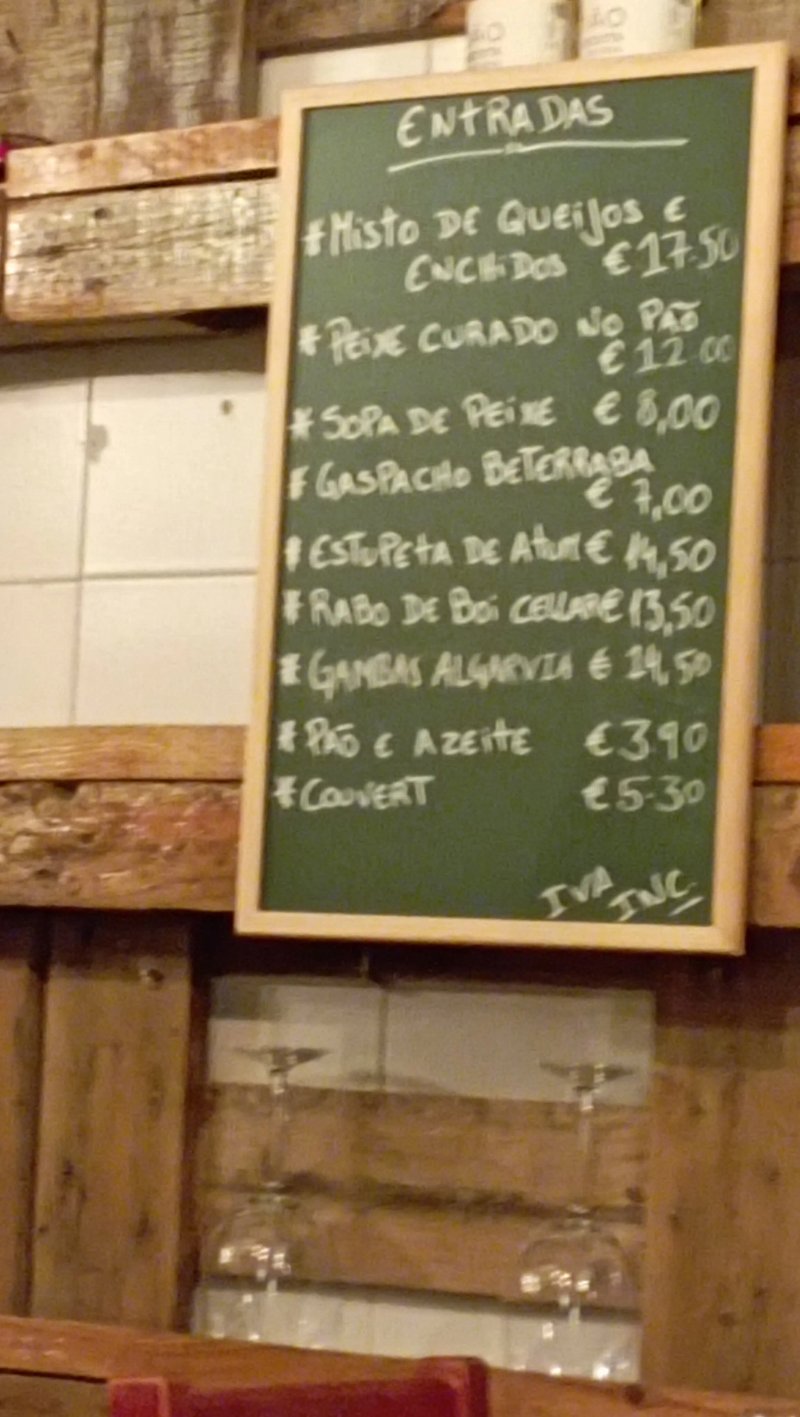 ENTRADAS
#MISTO DE QUEIJOS E
ENCHIDOS € 17.50
# PEIXE CURADO NO PÃO
€ 12.00
# SOPA DE PEIXE € 8,00
# GASPACHO BETERRABA
€ 7,00
# ESTUPETA DE ATUM € 14,50
# RABO DE BOI CELLAR € 13,50
# GAMBAS ALGARVIA € 14,50
# PÃO E AZEITE € 3.90
# COUVERT € 5.30
IVA
INC.